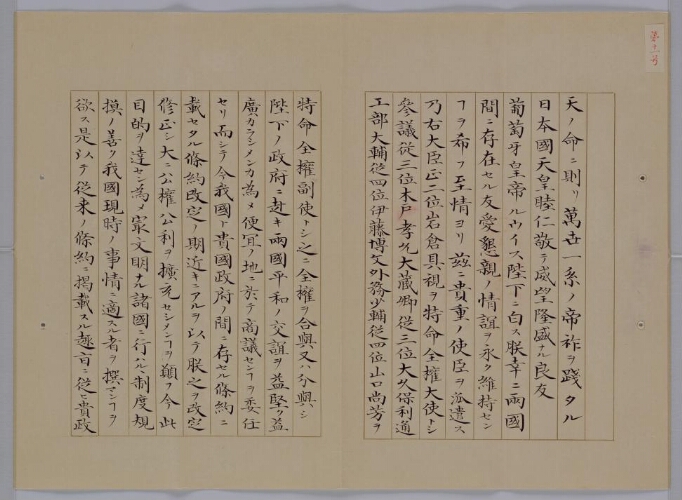 第十一号
天ノ命ニ則リ萬世一系ノ帝祚ヲ踐タル
日本國天皇睦仁敬テ威望隆盛ナル良友
葡萄牙皇帝ルウイス陛下ニ白ス朕幸ニ兩國
間ニ存在セル友愛懇親ノ情誼ヲ永ク維持セン
ヿヲ希フ至情ヨリ玆ニ貴重ノ使臣ヲ派遣ス
乃右大臣正二位岩倉具視ヲ特命全權大使トシ
參議從三位木戸孝允大藏卿從三位大久保利通
工部大輔從四位伊藤博文外務少輔從四位山口尚芳ヲ
特命全權副使トシ之ニ全權ヲ合與又ハ分與シ
陛下ノ政府ニ赴キ兩國平和ノ交誼ヲ益堅ク益
廣カラシメンカ為メ便宜ノ地ニ於テ商議センヿヲ委任
セリ而シテ今我國ト貴國政府ノ間ニ存セル條約ニ
載セタル條約改定ノ期近キニアルヲ以テ朕之ヲ改定
修正シ大ニ公權公利ヲ擴充セシメンヿヲ願フ今此
目的ヲ達セン為メ冣文明ナル諸國ニ行ハルヽ制度規
摸ノ善ク我國現時ノ事情ニ適スル者ヲ撰マンヿヲ
欲ス是以テ從来ノ條約ニ掲載スル趣旨ニ從ヒ貴政